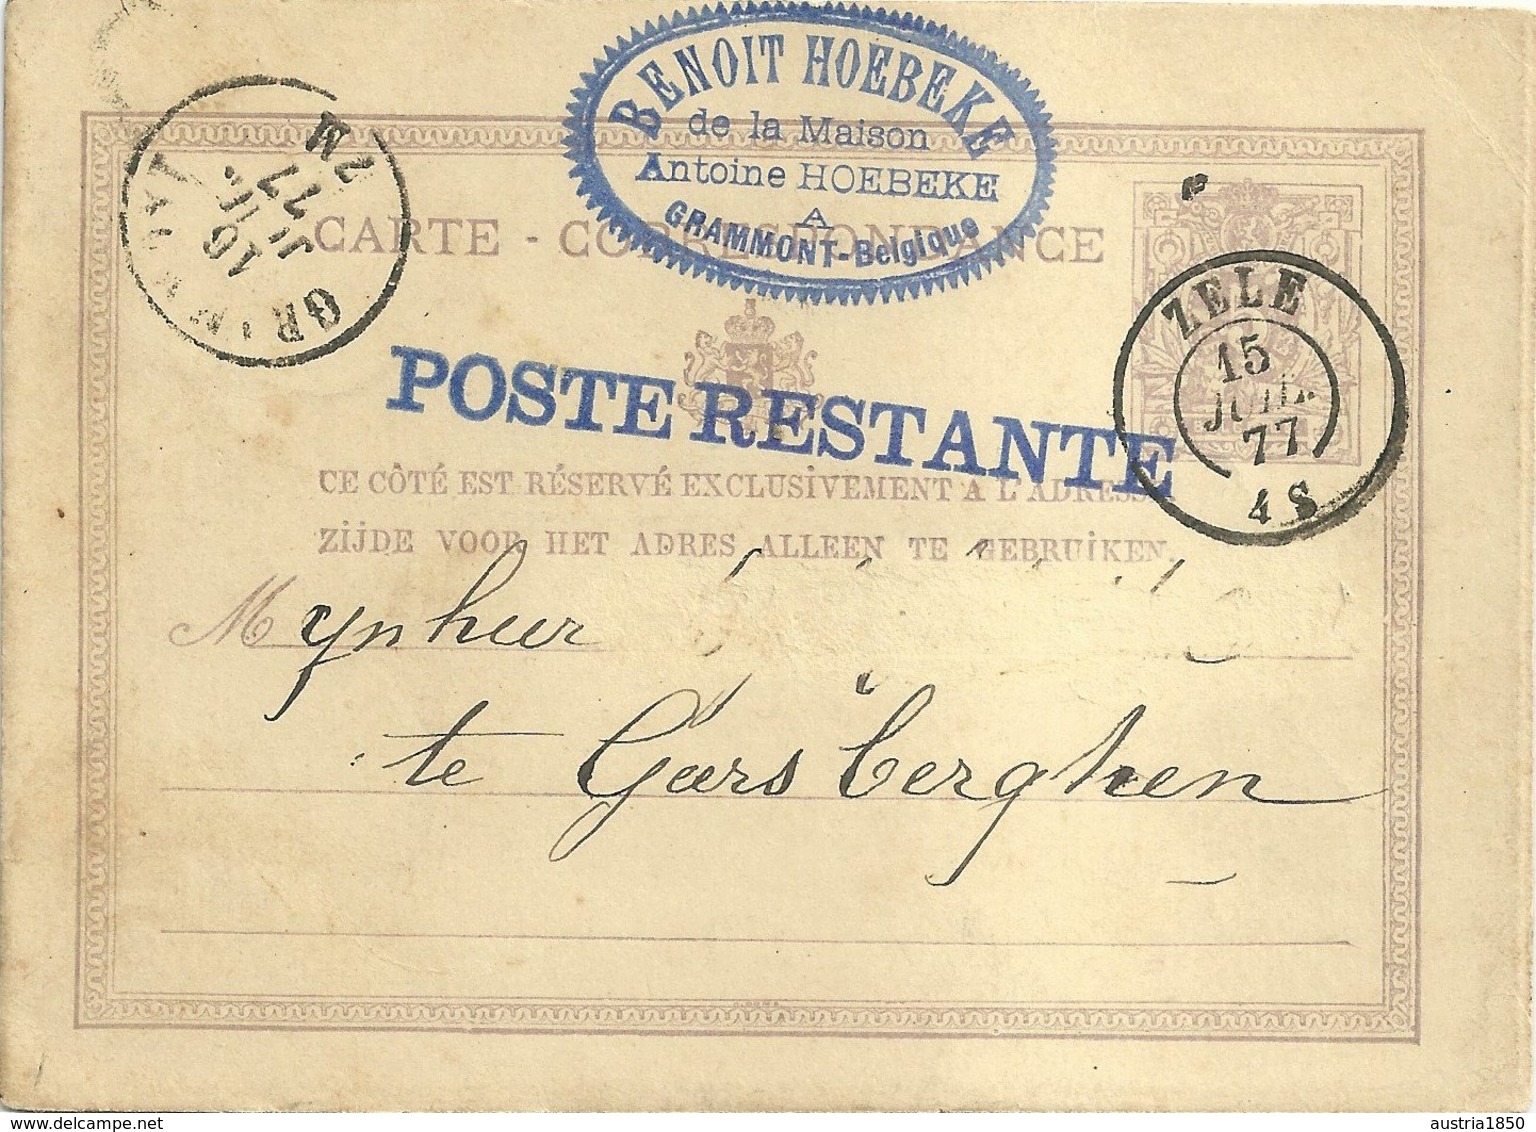 BENOIT HOEBEKE
de la Maison
Antoine HOEBEKE
A
GRAMMONT-Belgique
CARTE - CORRESPONDANCE
ZELE
15
JUIL.
77
4 S
16
JUIL.
77
7 M
POSTE RESTANTE
CE CÔTÉ EST RÉSERVÉ EXCLUSIVEMENT A L'ADRESSE
ZIJDE VOOR HET ADRES ALLEEN TE GEBRUIKEN.
Mynheer
te Geersberghen
www.delcampe.net
austria1850